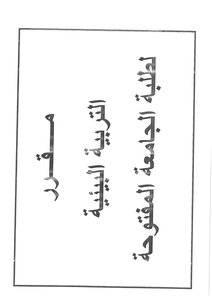 مقرر
التربية البيئية
لطلبة الجامعة المفتوحة